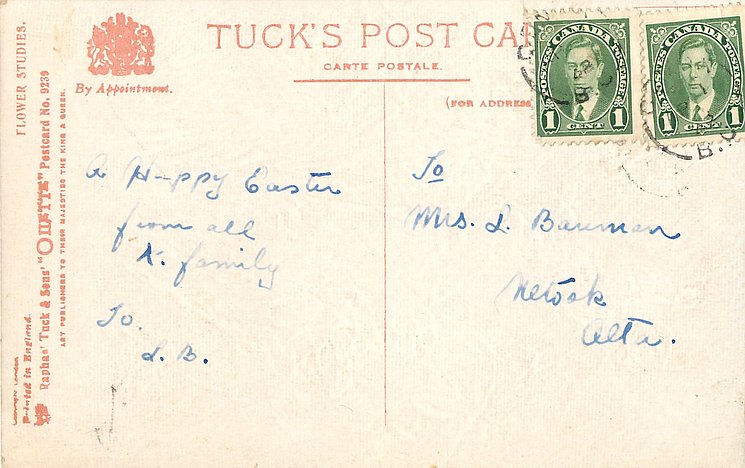 FLOWER STUDIES.
Raphael Tuck & Sons' "OILETTE" Postcard No. 9239
ART PUBLISHERS TO THEIR MAJESTIES THE KING & QUEEN.
Printed in England.
By Appointment.
TUCK'S POST CA
CARTE POSTALE.
(FOR ADDRESS
POSTES CANADA POSTAGE
1 CENT 1
POSTES CANADA POSTAGE
1 CENT 1
B.C.
A Happy Easter
from all
K. family
To.
L. B.
To
Mrs. L. Bauman
Netook
Alta.